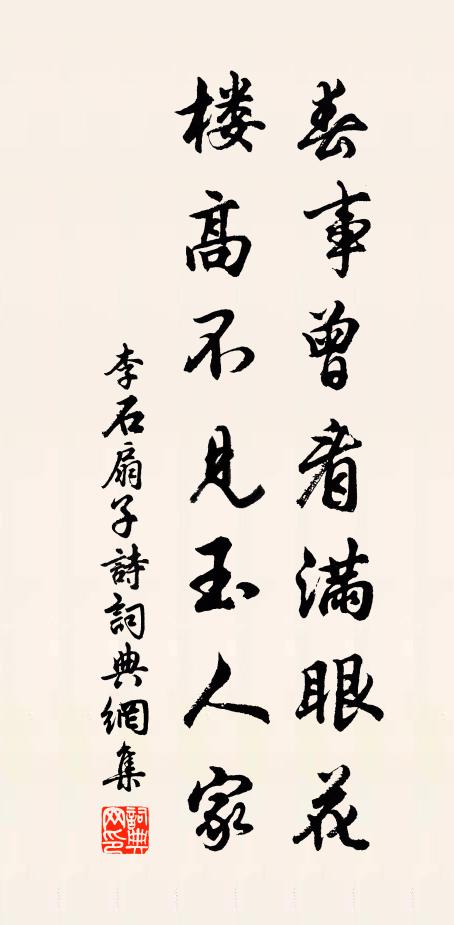 春事曾看满眼花
楼高不见玉人家
李石扇子詩詞典網集
詞典网印